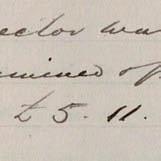 ector wa
mined of
£5. 11.